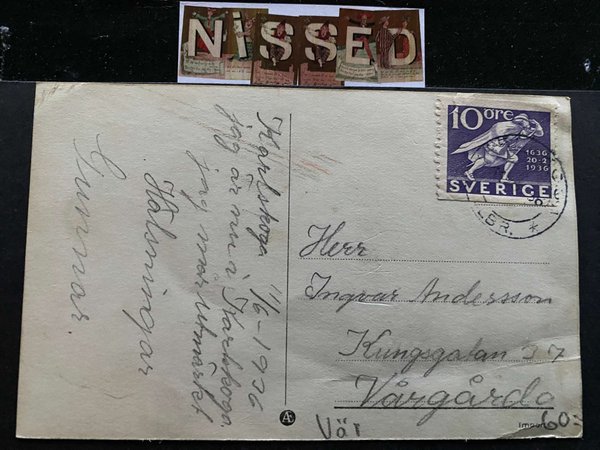 NISSED
Karlskoga 11/6-1936
jag är nu i Karlskoga.
jag mår utmärket
Hälsningar
Gunnar.
10 ÖRE
1636
20-2
1936
SVERIGE
LBR.
Herr
Ingvar Andersson
Kungsgatan 37
Vårgårda
60:-
Vär
Import